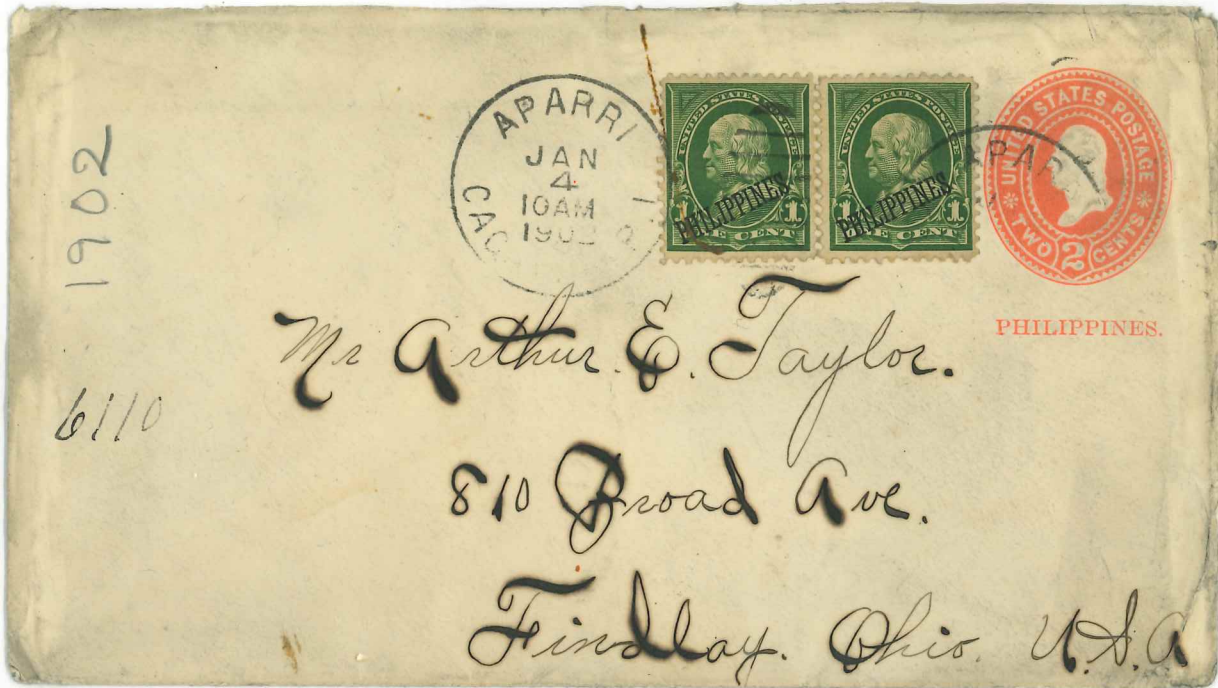 APARRI
JAN
4
10AM
190
CAG
P.I.
UNITED STATES POSTAGE
PHILIPPINES
ONE CENT
1 1
UNITED STATES POSTAGE
PHILIPPINES
ONE CENT
1 1
APAR
UNITED STATES POSTAGE
TWO 2 CENTS
PHILIPPINES.
1902
6110
Mr Arthur. E. Taylor.
810 Broad Ave.
Findlay. Ohio. U.S.A